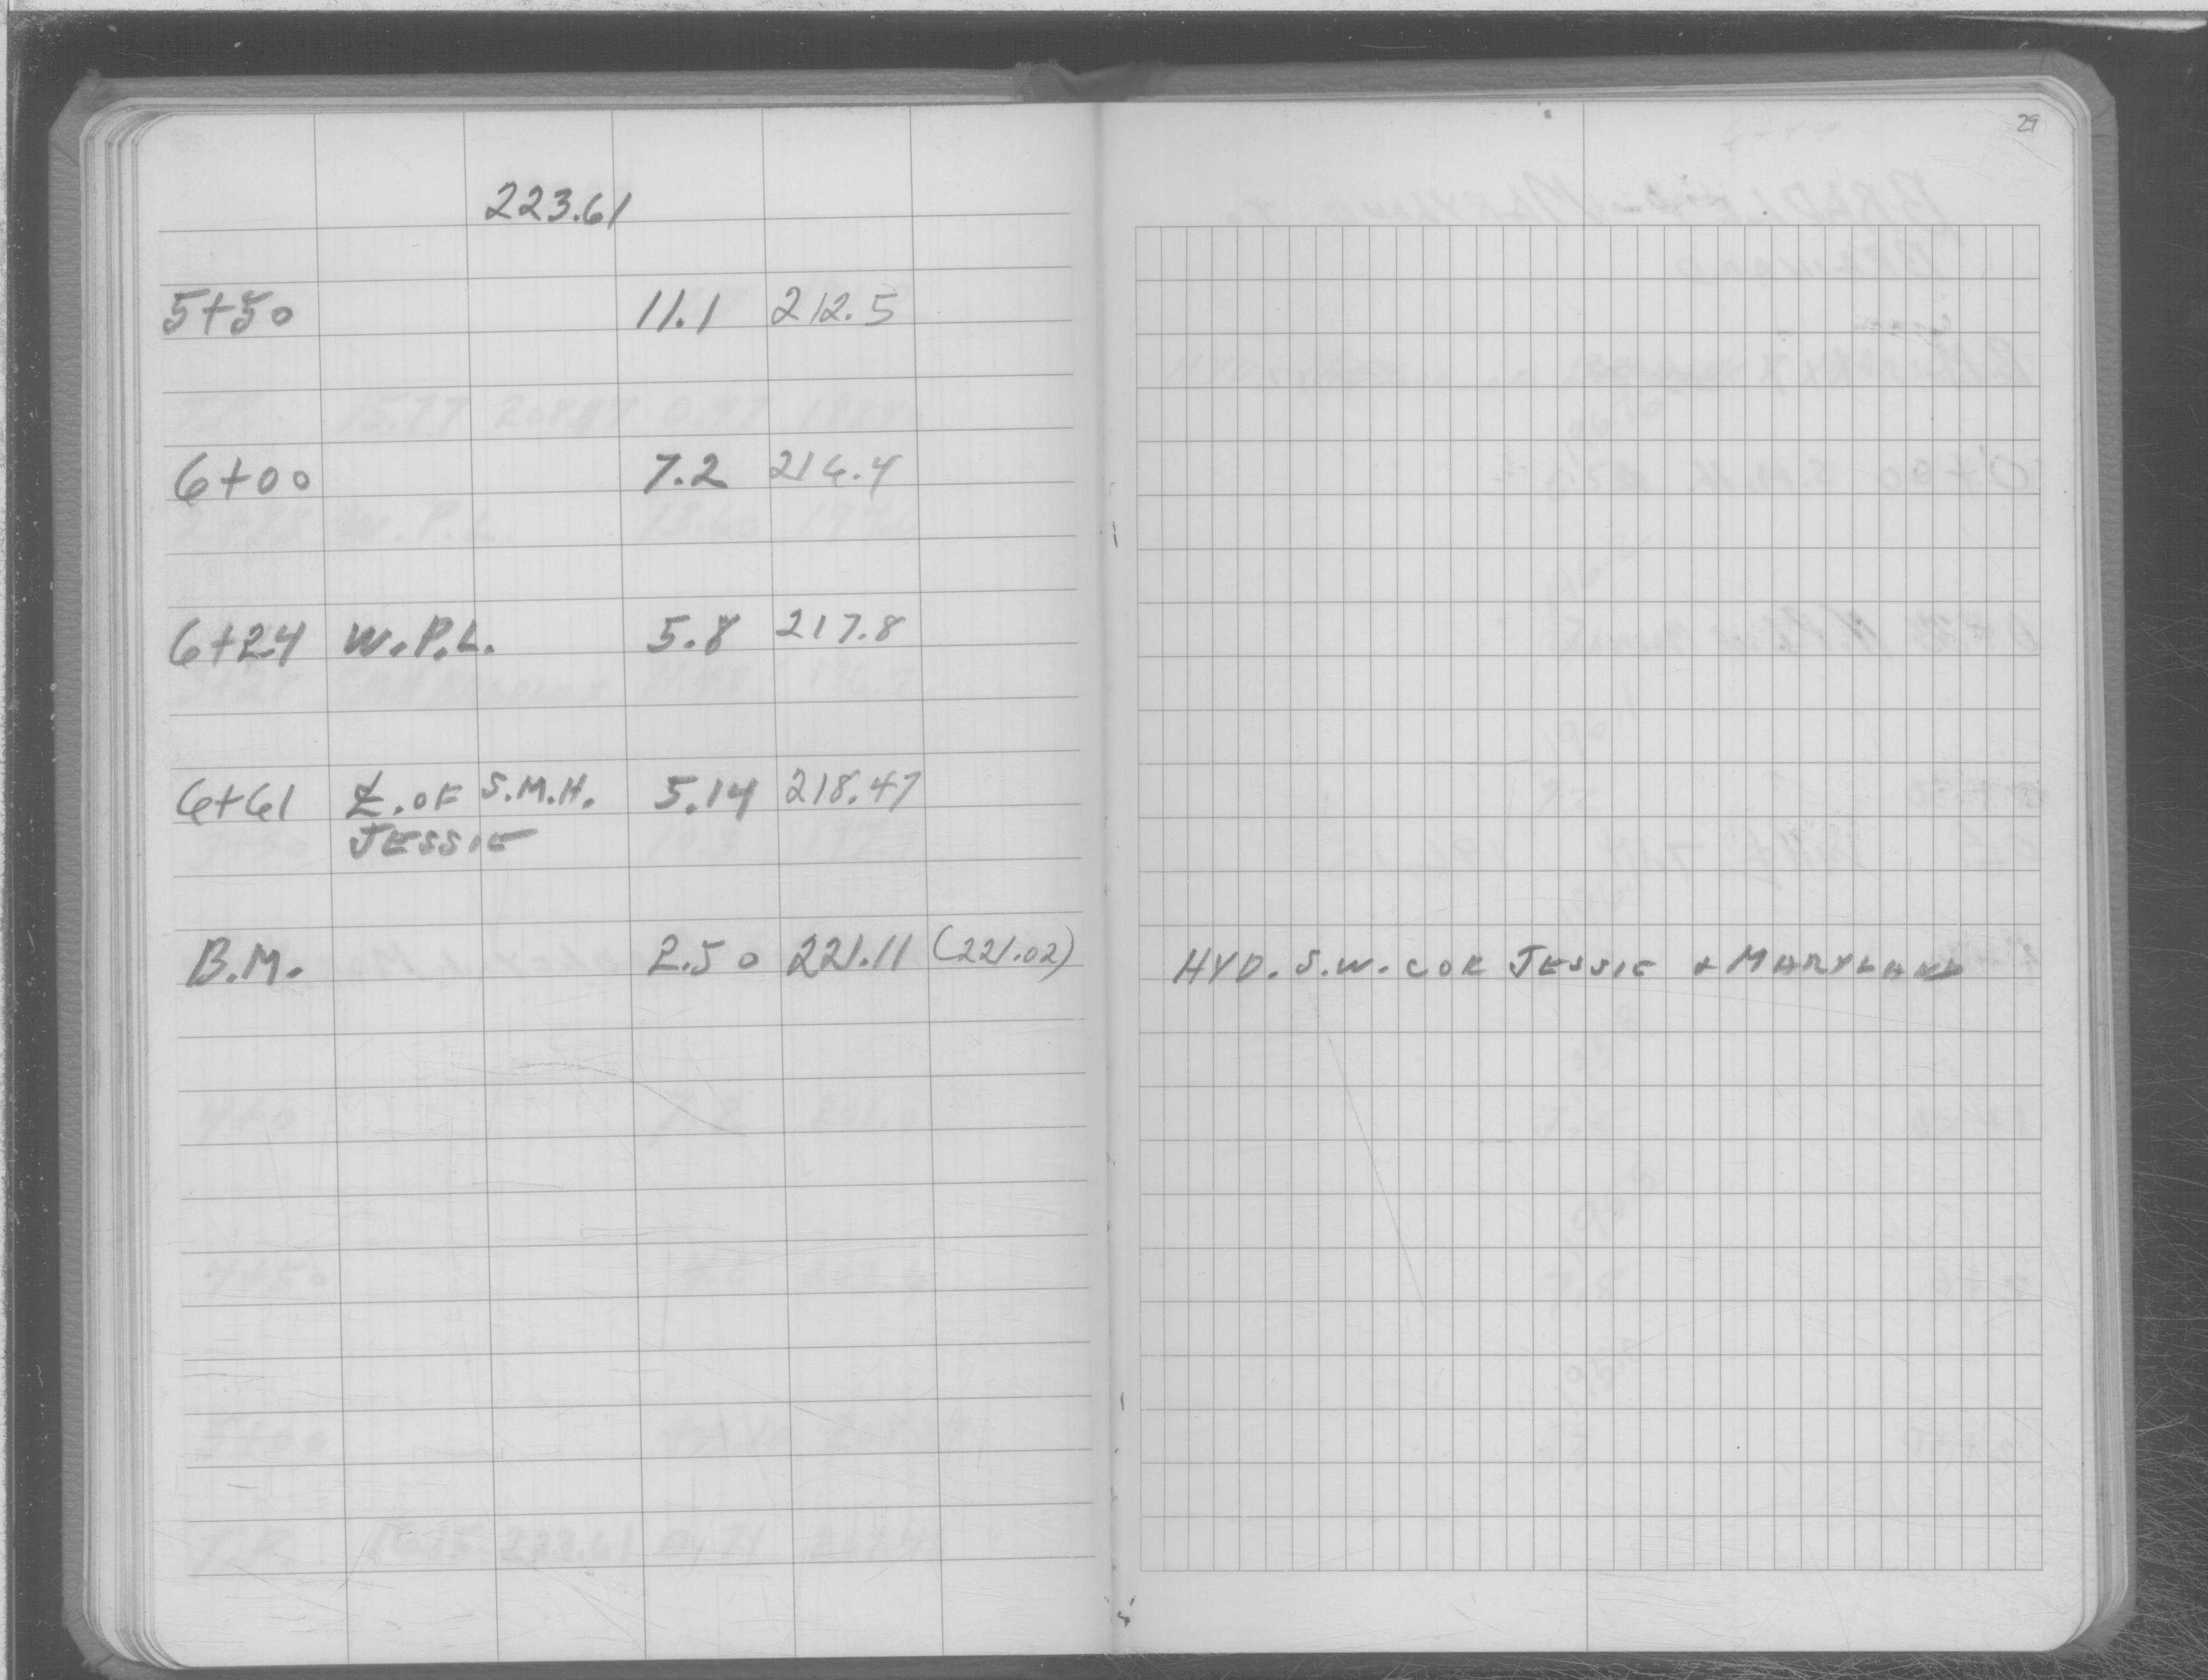 29
223.61
5+50 11.1 212.5
6+00 7.2 216.4
6+24 W.P.L. 5.8 217.8
6+61 ℄. OF S.M.H. 5.14 218.47
JESSIE
B.M. 2.50 221.11 (221.02) HYD. S.W. COR JESSIE & MARYLAND